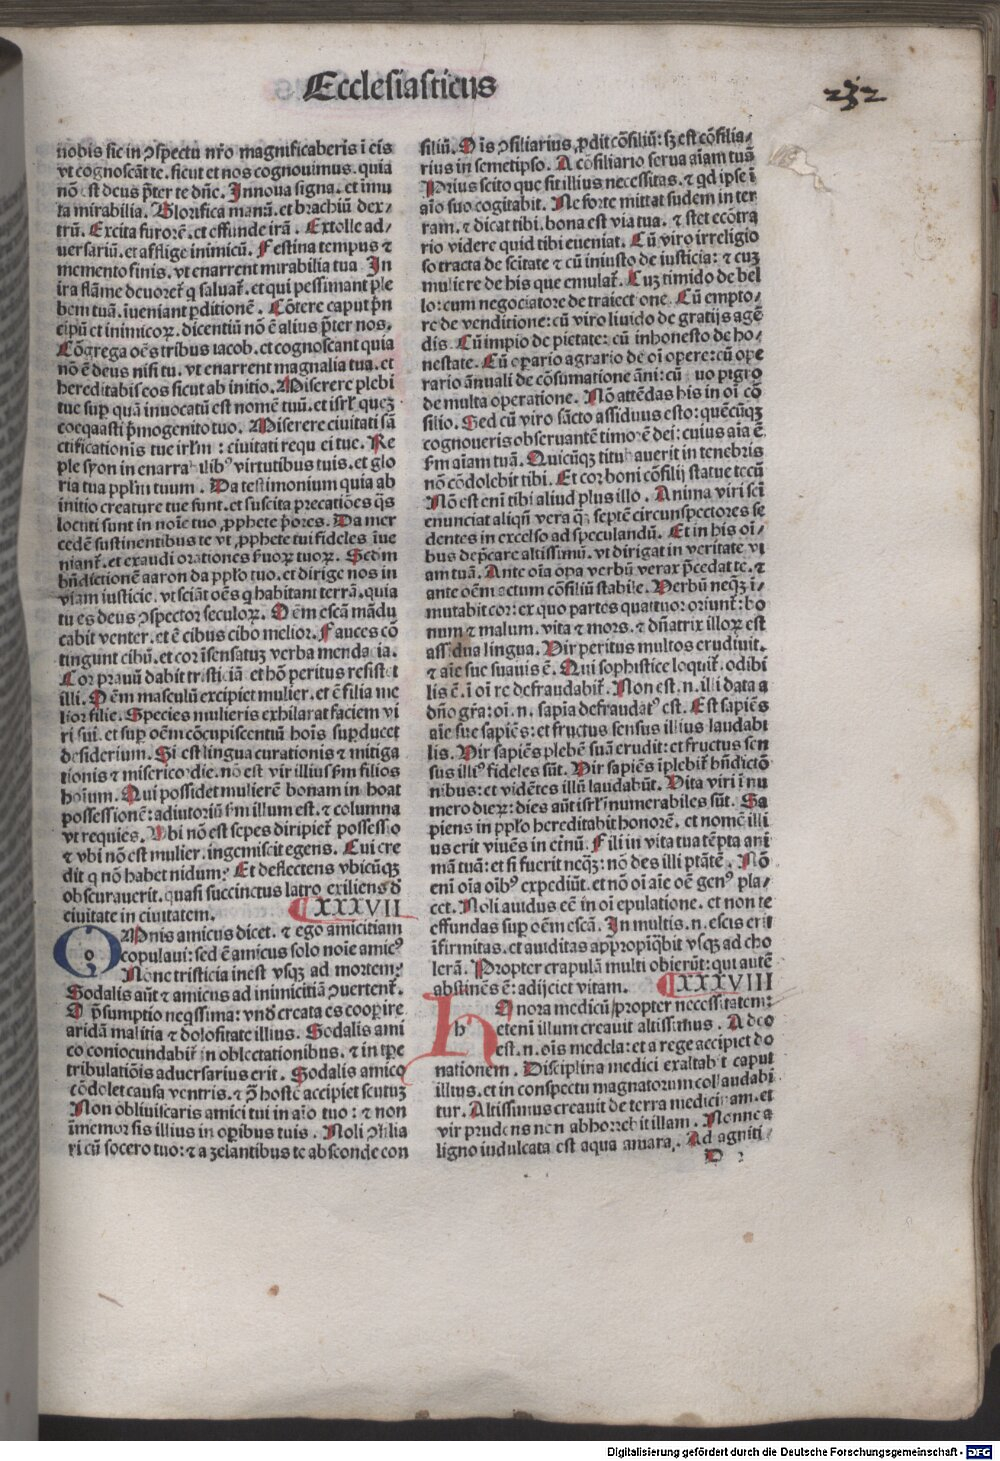 Ecclesiasticus
232
nobis sic in ꝯspectu nr̄o magnificaberis ī eis
vt cognoscāt te. sicut et nos cognouimus. quia
nō est deus p̄ter te dn̄e. Innoua signa. et inmu
ta mirabilia. Glorifica manū. et brachiū dex/
trū. Excita furorē. et effunde irā. Extolle ad/
uersariū. et afflige inimicū. Festina tempus ⁊
memento finis. vt enarrent mirabilia tua In
ira flāme deuoret̄ q saluat̄. et qui pessimant ple
bem tuā. īueniant ꝑditionē. Cōtere caput p̄n
cipū et inimicoꝝ. dicentiū nō ē alius p̄ter nos.
Cōgrega oēs tribus iacob. et cognoscant quia
nō ē deus nisi tu. vt enarrent magnalia tua. et
hereditabis eos sicut ab initio. Miserere plebi
tue suꝑ quā inuocatū est nomē tuū. et isrl̄ queꝫ
coeqasti p̄mogenito tuo. Miserere ciuitati sā
ctificationis tue irl̄m : ciuitati requiei tue. Re
ple syon in enarrabilibꝰ virtutibus tuis. et glo
ria tua ppl̄m tuum. Da testimonium quia ab
initio creature tue sunt. et suscita precatiōes q̄s
locuti sunt in noīe tuo ꝓphete p̄ores. Da mer
cedē sustinentibus te vt ꝓphete tui fideles īue
niant̄. et exaudi orationes ẜuoꝝ tuoꝝ. Sedm
bn̄dictionē aaron da ppl̄o tuo. et dirige nos in
viam iusticie. vt sciāt oēs q habitant terrā. quia
tu es deus ꝯspector seculoꝝ. Oēm escā mādu
cabit venter. et ē cibus cibo melior. Fauces cō
tingunt cibū. et cor īsensatuꝫ verba mendacia.
Cor prauū dabit tristiciā et hō peritus resistet
illi. Oēm masculū excipiet mulier. et ē filia me
lior filie. Species mulieris exhilarat faciem vi
ri sui. et suꝑ oēm cōcupiscentiū hoīs suꝑducet
desiderium. Si est lingua curationis ⁊ mitiga
tionis ⁊ misericordie. nō est vir illius ẜm filios
hoīum. Qui possidet mulierē bonam in hoat
possessionē: adiutoriū ẜm illum est. ⁊ columna
vt requies. Vbi nō est sepes diripiet̄ possessio
⁊ vbi nō est mulier. ingemiscit egens. Cui cre
dit q nō habet nidum? Et deflectens vbicūqꝫ
obscurauerit. quasi succinctus latro exiliens d̄
ciuitate in ciuitatem. XXXVII
OMnis amicus dicet. ⁊ ego amicitiam
copulaui: sed ē amicus solo noīe amicꝰ
Nonne tristicia inest vsqꝫ ad mortem?
Sodalis aūt ⁊ amicus ad inimicitiā ꝯuertent̄.
O p̄sumptio neqssima: vnd̄ creata es cooperire
aridā malitia ⁊ dolositate illius. Sodalis ami
co coniocundabit̄ in oblectationibus. ⁊ in tꝑe
tribulatiōis aduersarius erit. Sodalis amico
cōdolet causa ventris. ⁊ ꝯ̄ hostē accipiet scutuꝫ
Non obliuiscaris amici tui in aīo tuo : ⁊ non
īmemor sis illius in oꝑibus tuis. Noli ꝯsilia
ri cū socero tuo: ⁊ a zelantibus te absconde con
siliū. Oīs ꝯsiliarius ꝓdit cōsiliū: sꝫ est cōsilia/
rius in semetipso. A cōsiliario serua aīam tuā
Prius scito que sit illius necessitas. ⁊ qd ipse ī
aīo suo cogitabit. Ne forte mittat sudem in ter
ram. ⁊ dicat tibi. bona est via tua. ⁊ stet ecōtra
rio videre quid tibi eueniat. Cū viro irreligio
so tracta de scītate ⁊ cū iniusto de iusticia: ⁊ cuꝫ
muliere de his que emulat̄. Cuꝫ timido de bel
lo: cum negociatore de traiectione. Cū empto/
re de venditione: cū viro liuido de gratijs agē
dis. Cū impio de pietate: cū inhonesto de ho/
nestate. Cū oꝑario agrario de oī opere: cū ope
rario ānuali de cōsumatione āni: cū  uo pigro
de multa operatione. Nō attēdas his in oī cō
silio. Sed cū viro sācto assiduus esto: quēcūqꝫ
cognoueris obseruantē timorē dei: cuius aīa ē
ẜm aīam tuā. Quicūqꝫ titubauerit in tenebris
nō cōdolebit tibi. Et cor boni cōsilij statue tecū
Nō est enī tibi aliud plus illo. Anima viri sci
enunciat aliqn̄ vera q̄ septē circunspectores se
dentes in excelso ad speculandū. Et in his oī/
bus dep̄care altissimū. vt dirigat in veritate vi
am tuā. Ante oīa oꝑa verbū verax p̄cedat te. ⁊
ante oēm actum cōsiliū stabile. Verbū neqꝫ ī/
mutabit cor: ex quo partes quattuor oriunt̄: bo
num ⁊ malum. vita ⁊ mors. ⁊ dn̄atrix illoꝝ est
assidua lingua. Vir peritus multos erudiuit.
⁊ aīe sue suauis ē. Qui sophistice loquit̄. odibi
lis ē. ī oī re defraudabit̄. Non est .n. illi data a
dn̄o gr̄a: oī .n. sapīa defraudatꝰ est. Est sapiēs
aīe sue sapiēs: et fructus sensus illius laudabi
lis. Vir sapiēs plebē suā erudit: et fructus sen
sus illiꝰ fideles sūt. Vir sapiēs īplebit̄ bn̄dictō
nibus: et vidētes illū laudabūt. Vita viri ī nu
mero dieꝝ: dies aūt isrl̄ īnumerabiles sūt. Sa
piens in ppl̄o hereditabit honorē. et nomē illi
us erit viuēs in etnū. Fili in vita tua tēpta ani
mā tuā: et si fuerit neqꝫ: nō des illi ptātē. Nō
enī oīa oībꝰ expediūt. et nō oī aīe oē genꝰ pla/
cet. Noli auidus eē in oī epulatione. et non te
effundas suꝑ oēm escā. In multis .n. escis erit
īfirmitas. et auiditas appropīqbit vsqꝫ ad cho
lerā. Propter crapulā multi obierūt: qui autē
abstinēs ē: adijciet vitam. XXXVIII
HOnora medicū propter necessitatem:
etenī illum creauit altissimus. A deo
est .n. oīs medela: et a rege accipiet do
nationem. Disciplina medici exaltabit caput
illius. et in conspectu magnatorum collaudabi
tur. Altissimus creauit de terra medicinam. et
vir prudens non abhorrebit illam. Nonne a
ligno indulcata est aqua amara. Ad agniti/
Digitalisierung gefördert durch die Deutsche Forschungsgemeinschaft - DFG